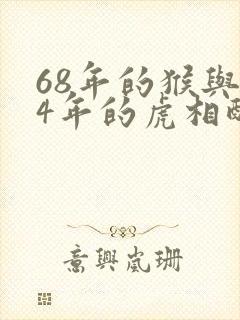 68年的猴與
4年的虎相配
意興嵐珊